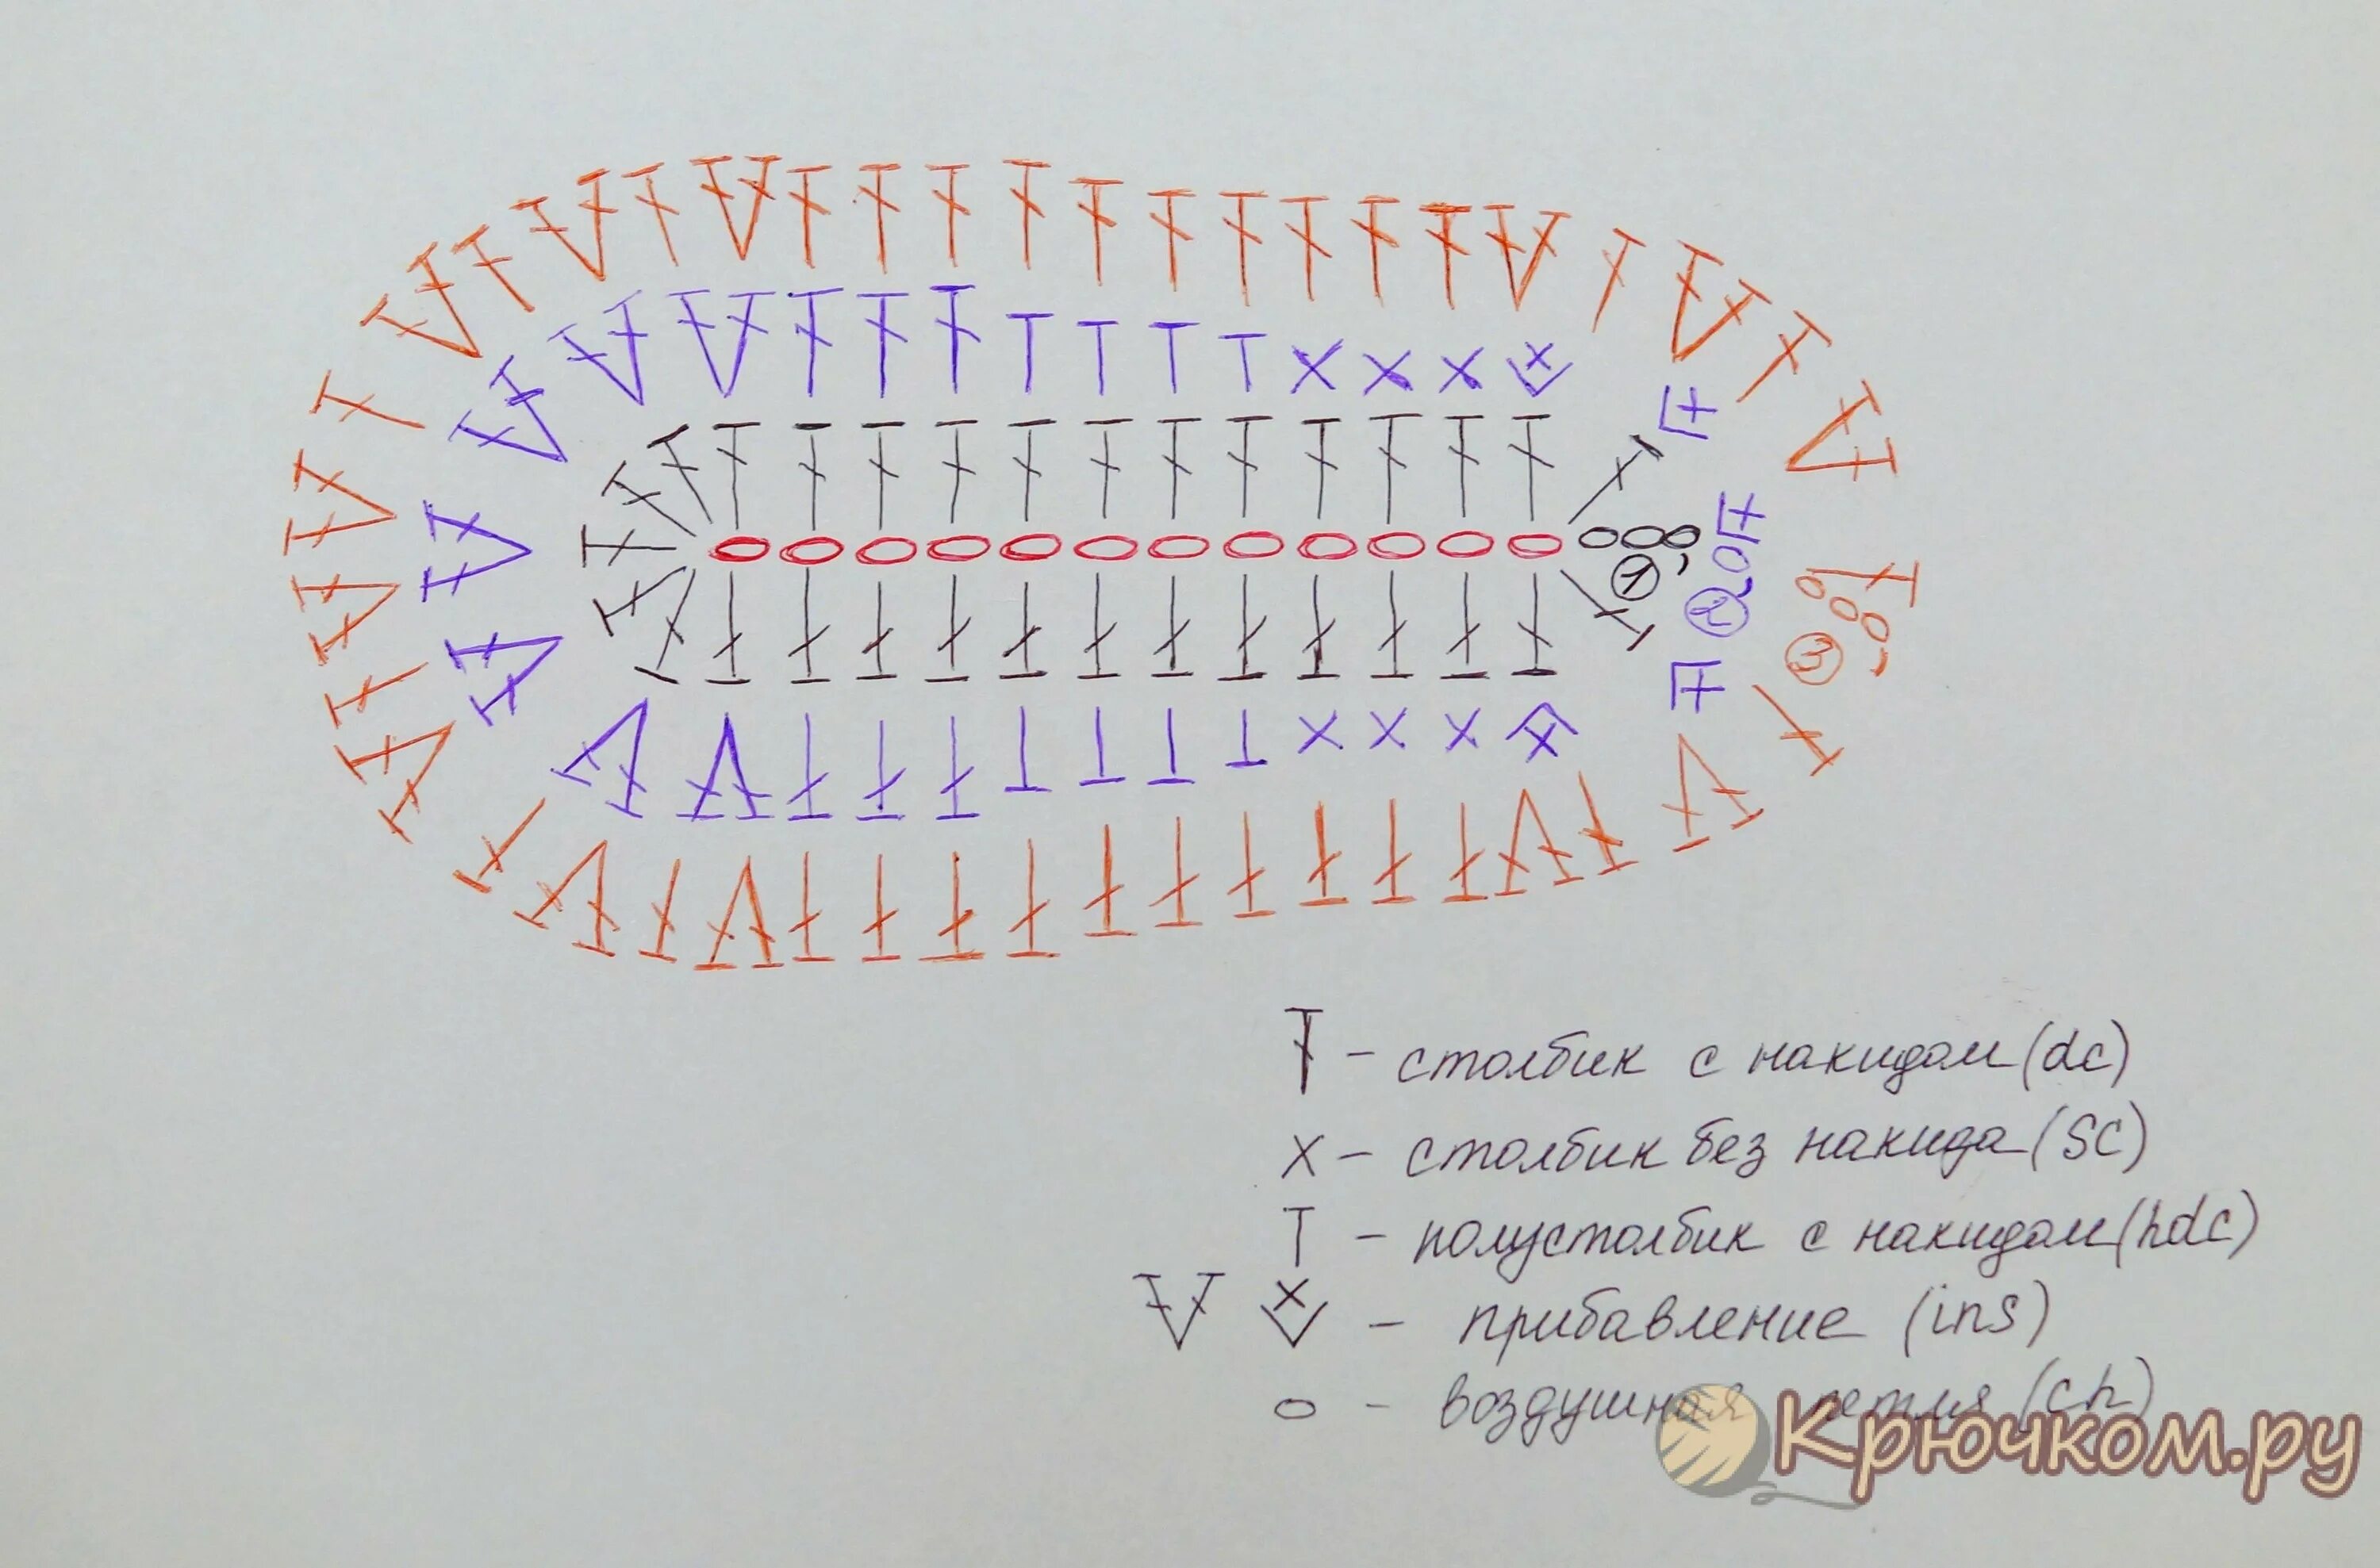 1
2
3
- столбик с накидом (dc)
х - столбик без накида (sc)
- полустолбик с накидом (hdc)
- прибавление (ins)
- воздушная петля (ch)
Крючком.ру